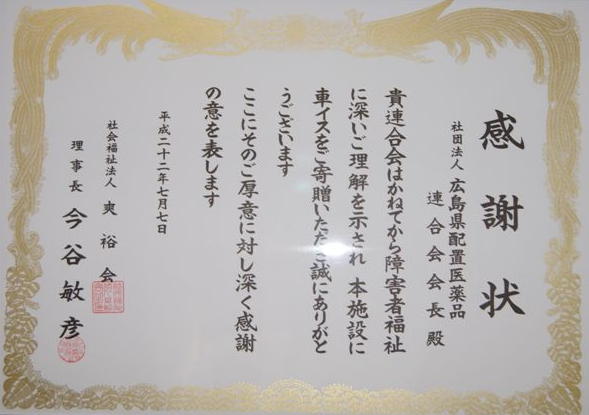 感謝状
社団法人 広島県配置医薬品
連合会会長 殿
貴連合会はかねてから障害者福祉
に深いご理解を示され 本施設に
車イスをご寄贈いただき誠にありがと
うございます
ここにそのご厚意に対し深く感謝
の意を表します
平成二十二年七月七日
社会福祉法人 爽裕会
理事長 今谷敏彦